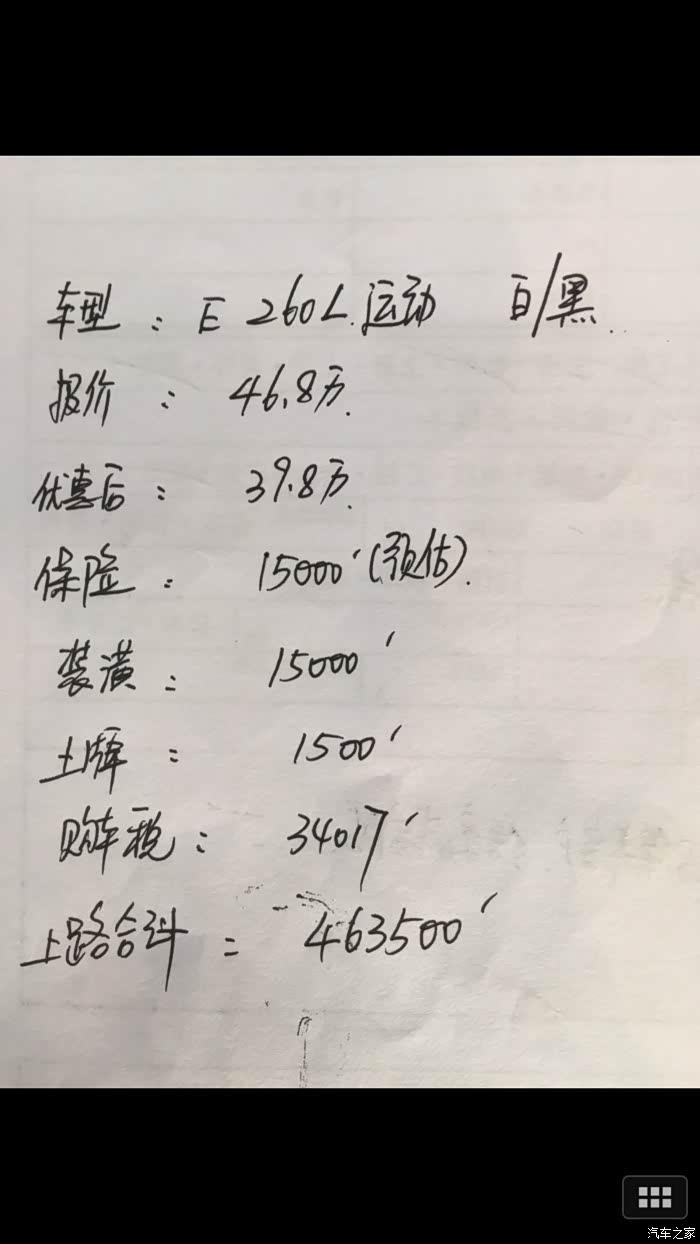 车型：E 260L.运动 白/黑.
报价：46.8万.
优惠后：39.8万.
保险：15000'(预估).
装潢：15000'
上牌：1500'
购车税：34017'
上路合计：463500'
汽车之家